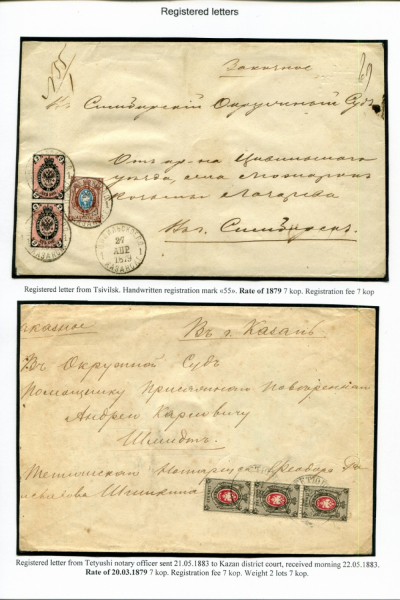 Registered letters
№ 55
Заказное
Въ Симбирскій Окружный Судъ
Отъ кр-на Цивильскаго
уѣзда, села
Въ г. Симбирскъ.
27
АПР
1879
Registered letter from Tsivilsk. Handwritten registration mark «55». Rate of 1879 7 kop. Registration fee 7 kop
Въ г. Казань
Въ Окружной Судъ
Помощнику Присяжнаго Повѣреннаго
Андрею Карловичу
Шмидтъ.
Registered letter from Tetyushi notary officer sent 21.05.1883 to Kazan district court, received morning 22.05.1883.
Rate of 20.03.1879 7 kop. Registration fee 7 kop. Weight 2 lots 7 kop.